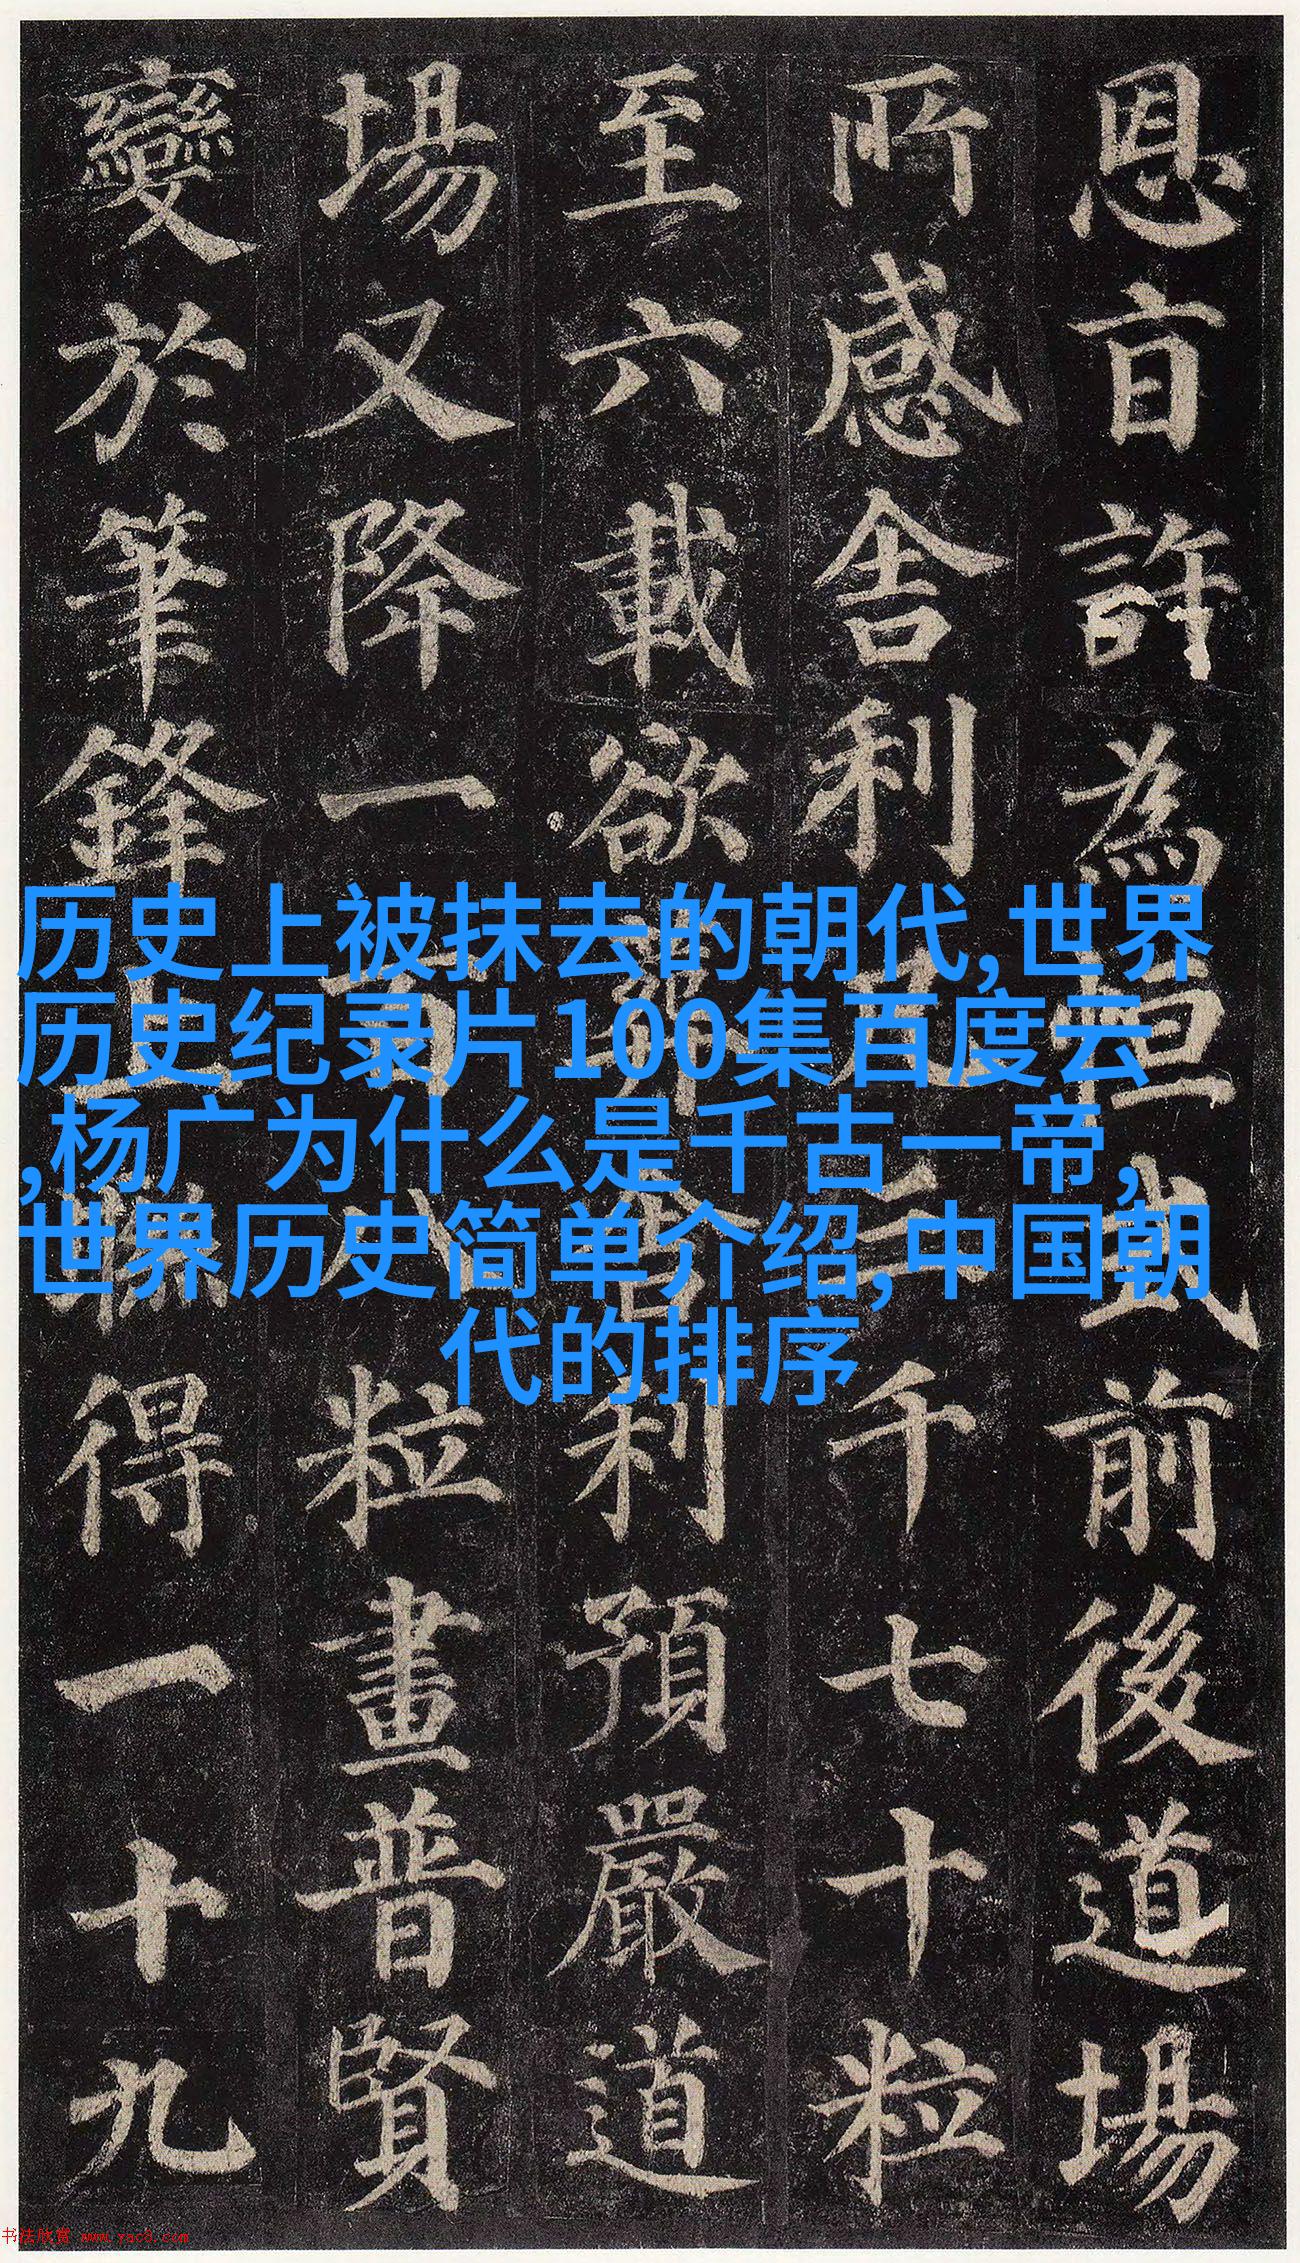 恩旨許為恒式前後道場
所感舍利凡三千七十粒
至六載欲葬舍利預嚴道
場又降一百八粒畫普賢
變於筆鋒上聯得一十九
历史上被抹去的朝代,世界
历史纪录片100集百度云
,杨广为什么是千古一帝,
世界历史简单介绍,中国朝
代的排序
书法欣赏 www.yac8.com